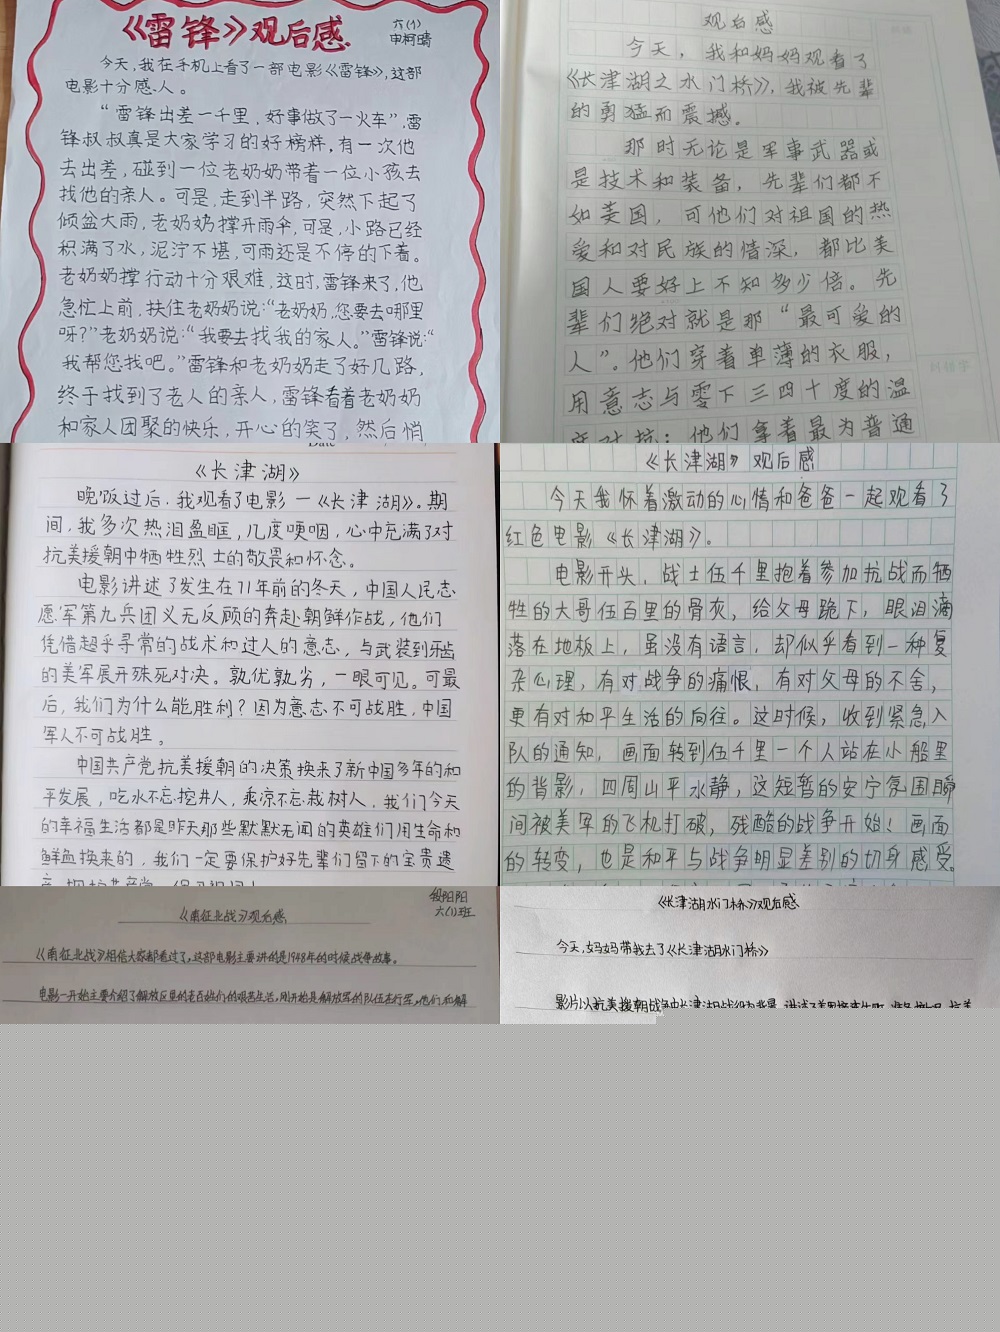 《雷锋》观后感
六(1)
申柯晴
今天,我在手机上看了一部电影《雷锋》,这部
电影十分感人。
“雷锋出差一千里,好事做了一火车”,雷
锋叔叔真是大家学习的好榜样,有一次他
去出差,碰到一位老奶奶带着一位小孩去
找他的亲人。可是,走到半路,突然下起了
倾盆大雨,老奶奶撑开雨伞,可是,小路已经
积满了水,泥泞不堪,可雨还是不停的下着。
老奶奶撑行动十分艰难,这时,雷锋来了,他
急忙上前,扶住老奶奶说:“老奶奶,您要去哪里
呀?”老奶奶说:“我要去找我的家人。”雷锋说:“
我帮您找吧。”雷锋和老奶奶走了好几路,
终于找到了老人的亲人,雷锋看着老奶奶
和家人团聚的快乐,开心的笑了,然后悄
观后感
今天,我和妈妈观看了
《长津湖之水门桥》,我被先辈
的勇猛而震撼。
那时无论是军事武器或
是技术和装备,先辈们都不
如美国,可他们对祖国的热
爱和对民族的情深,都比美
国人要好上不知多少倍。先
辈们绝对就是那“最可爱的
人”。他们穿着单薄的衣服,
用意志与零下三四十度的温
度对抗;他们拿着最为普通
《长津湖》
晚饭过后,我观看了电影一《长津湖》。期
间,我多次热泪盈眶,几度哽咽,心中充满了对
抗美援朝中牺牲烈士的敬畏和怀念。
电影讲述了发生在71年前的冬天,中国人民志
愿军第九兵团义无反顾的奔赴朝鲜作战,他们
凭借超乎寻常的战术和过人的意志,与武装到牙齿
的美军展开殊死对决。孰优孰劣,一眼可见。可最
后,我们为什么能胜利?因为意志不可战胜,中国
军人不可战胜。
中国共产党抗美援朝的决策换来了新中国多年的和
平发展,吃水不忘挖井人,乘凉不忘栽树人,我们今天
的幸福生活都是昨天那些默默无闻的英雄们用生命和
鲜血换来的,我们一定要保护好先辈们留下的宝贵遗
《长津湖》观后感
今天我怀着激动的心情和爸爸一起观看了
红色电影《长津湖》。
电影开头,战士伍千里抱着参加抗战而牺
牲的大哥伍百里的骨灰,给父母跪下,眼泪滴
落在地板上,虽没有语言,却似乎看到一种复
杂心理,有对战争的痛恨,有对父母的不舍,
更有对和平生活的向往。这时候,收到紧急入
队的通知,画面转到伍千里一个人站在小船里
的背影,四周山平水静,这短暂的安宁氛围瞬
间被美军的飞机打破,残酷的战争开始!画面
的转变,也是和平与战争明显差别的切身感受。
段阳阳
六(1)班
《南征北战》观后感
《南征北战》相信大家都看过了,这部电影主要讲的是1948年的时候战争故事。
电影一开始主要介绍了解放区里的老百姓们的艰苦生活,刚开始是解放军的队伍在行军,他们和解
《长津湖水门桥》观后感
今天,妈妈带我去了《长津湖水门桥》
影片以抗美援朝战争中长津湖战役为背景,讲述了